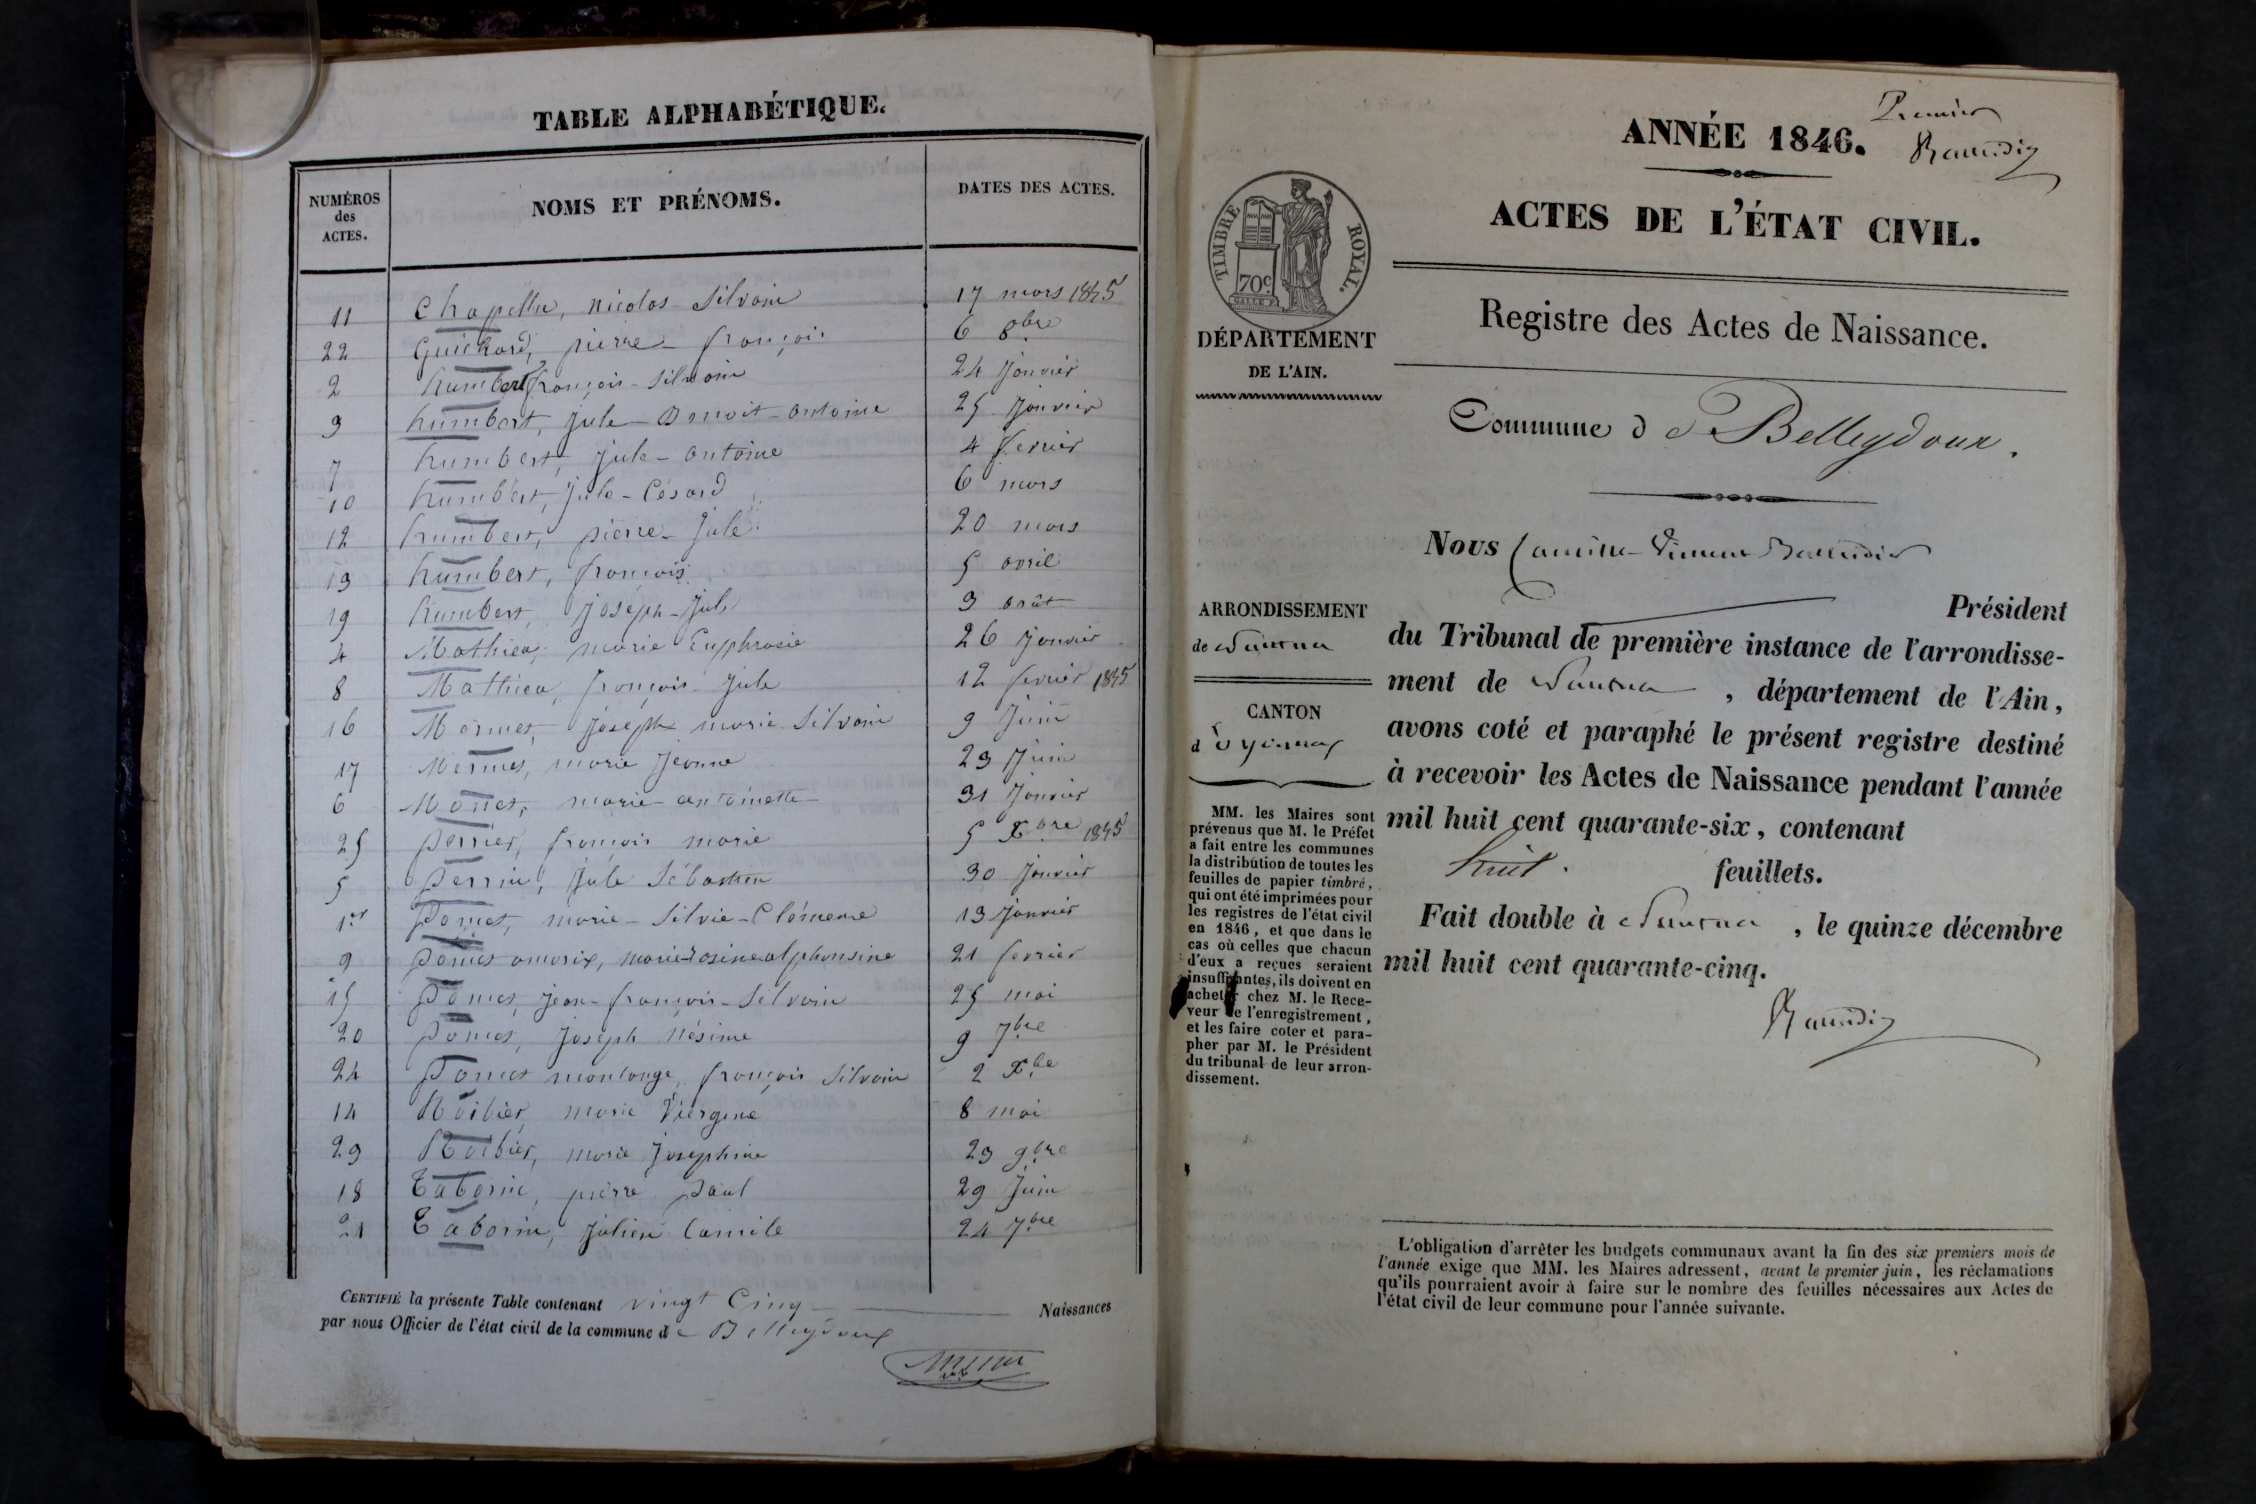 TABLE ALPHABÉTIQUE.
NUMÉROS des ACTES. NOMS ET PRÉNOMS. DATES DES ACTES.
11 Chapellu, nicolas Silvain 17 mars 1845
22 Guichard, pierre françois 6 8bre
2 humbert françois Silvain 24 Janvier
3 humbert, Jule Benoit antoine 25 Janvier
7 humbert, Jule antoine 4 fevrier
10 humbert, Jule Césard 6 mars
12 humbert, pierre Jule 20 mars
13 humbert, françois 5 avril
19 humbert, Joseph Jule 3 août
4 Mathieu, marie Euphrasie 26 Janvier
8 Mathieu, françois Jule 12 fevrier 1845
16 Mermet, Joseph marie Silvain 9 Juin
17 Mermet, marie Jeanne 23 Juin
6 marie antoinette 31 Janvier
25 perrier, françois marie 5 Xbre 1845
5 Perrin, Jule Sébastien 30 Janvier
1er Poncet, marie Silvie Clémence 13 Janvier
9 Poncet amorix, marie rosine alphonsine 21 fevrier
15 Poncet, Jean françois Silvain 25 mai
20 Poncet, Joseph nésime 9 7bre
24 Poncet montange, françois Silvain 2 Xbre
14 Roibier, marie Viergine 8 mai
23 Roibier, marie Josephine 23 9bre
18 Taborin, pierre paul 29 Juin
21 Taborin, Julien Camile 24 7bre
CERTIFIÉ la présente Table contenant vingt Cinq Naissances
par nous Officier de l'état civil de la commune de Belleydoux
Premier
ANNÉE 1846.
Baundier
ACTES DE L'ÉTAT CIVIL.
TIMBRE ROYAL.
70c.
DÉPARTEMENT
DE L'AIN.
Registre des Actes de Naissance.
Commune de Belleydoux.
Nous Camille
Président
ARRONDISSEMENT
de Nantua
du Tribunal de première instance de l'arrondisse-
ment de Nantua, département de l'Ain,
CANTON
d'Oyonnax
avons coté et paraphé le présent registre destiné
à recevoir les Actes de Naissance pendant l'année
mil huit cent quarante-six, contenant
huit. feuillets.
Fait double à Nantua, le quinze décembre
mil huit cent quarante-cinq.
MM. les Maires sont
prévenus que M. le Préfet
a fait entre les communes
la distribution de toutes les
feuilles de papier timbré,
qui ont été imprimées pour
les registres de l'état civil
en 1846, et que dans le
cas où celles que chacun
d'eux a reçues seraient
insuffisantes, ils doivent en
acheter chez M. le Rece-
veur de l'enregistrement,
et les faire coter et para-
pher par M. le Président
du tribunal de leur arron-
dissement.
L'obligation d'arrêter les budgets communaux avant la fin des six premiers mois de
l'année exige que MM. les Maires adressent, avant le premier juin, les réclamations
qu'ils pourraient avoir à faire sur le nombre des feuilles nécessaires aux Actes de
l'état civil de leur commune pour l'année suivante.